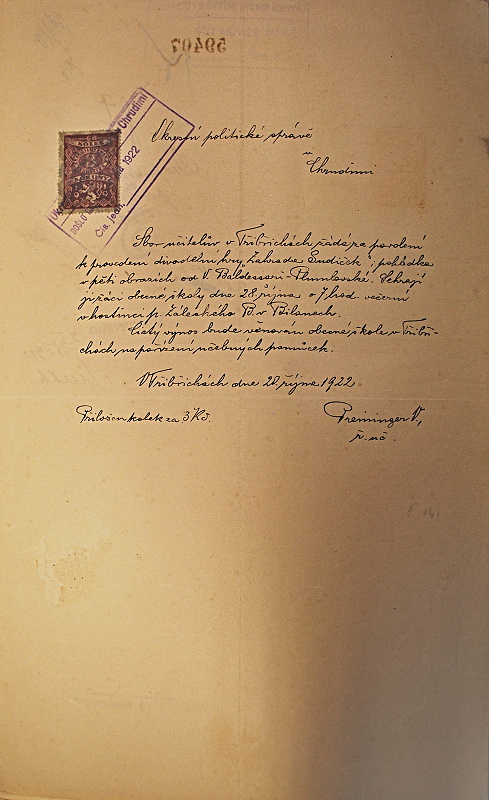 59407
Chrudimi
1922
Čís. jedn.
KOLEK
Okresní politické správě
v
Chrudimi
Sbor učitelův v Třibřichách žádá za povolení
k provedení divadelní hry „Zahrada Sudiček“; pohádka
v pěti obrazích od V. Baldessari-Plumlovské. Sehrají
ji žáci obecné školy dne 28. října o 7 hod. večerní
v hostinci p. Záleského B. v Bilanech.
Čistý výnos bude věnován obecné škole v Třibři-
chách na pořízení učebných pomůcek.
V Třibřichách dne 20. října 1922.
Přiložen kolek za 3 Kč.
Preininger V.,
ř. uč.